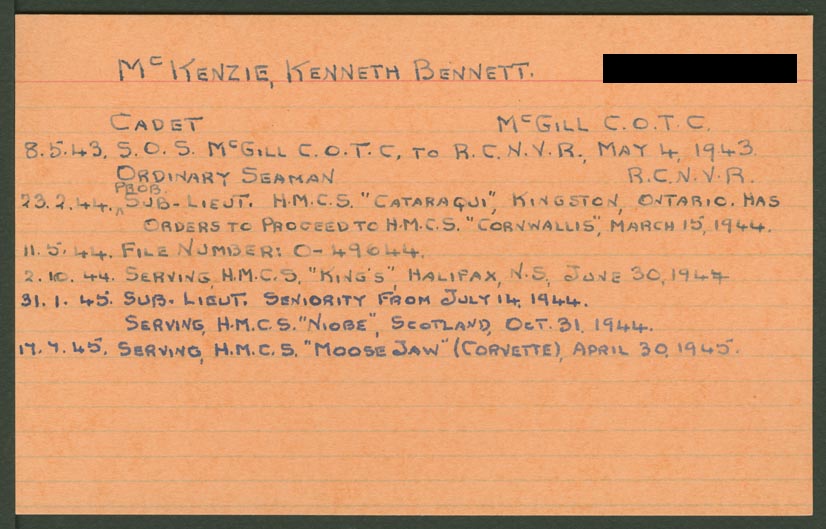 McKENZIE, KENNETH BENNETT.
CADET McGILL C.O.T.C.
8.5.43. S.O.S. McGILL C.O.T.C. TO R.C.N.V.R., MAY 4, 1943.
ORDINARY SEAMAN R.C.N.V.R.
PROB.
23.2.44. ^SUB-LIEUT. H.M.C.S. "CATARAQUI", KINGSTON, ONTARIO. HAS
ORDERS TO PROCEED TO H.M.C.S. "CORNWALLIS", MARCH 15, 1944.
11.5.44. FILE NUMBER: O-49644.
2.10.44. SERVING, H.M.C.S. "KING'S", HALIFAX, N.S, JUNE 30, 1944
31.1.45. SUB-LIEUT. SENIORITY FROM JULY 14, 1944.
SERVING, H.M.C.S. "NIOBE", SCOTLAND, OCT. 31, 1944.
17.7.45. SERVING, H.M.C.S. "MOOSE JAW" (CORVETTE), APRIL 30, 1945.